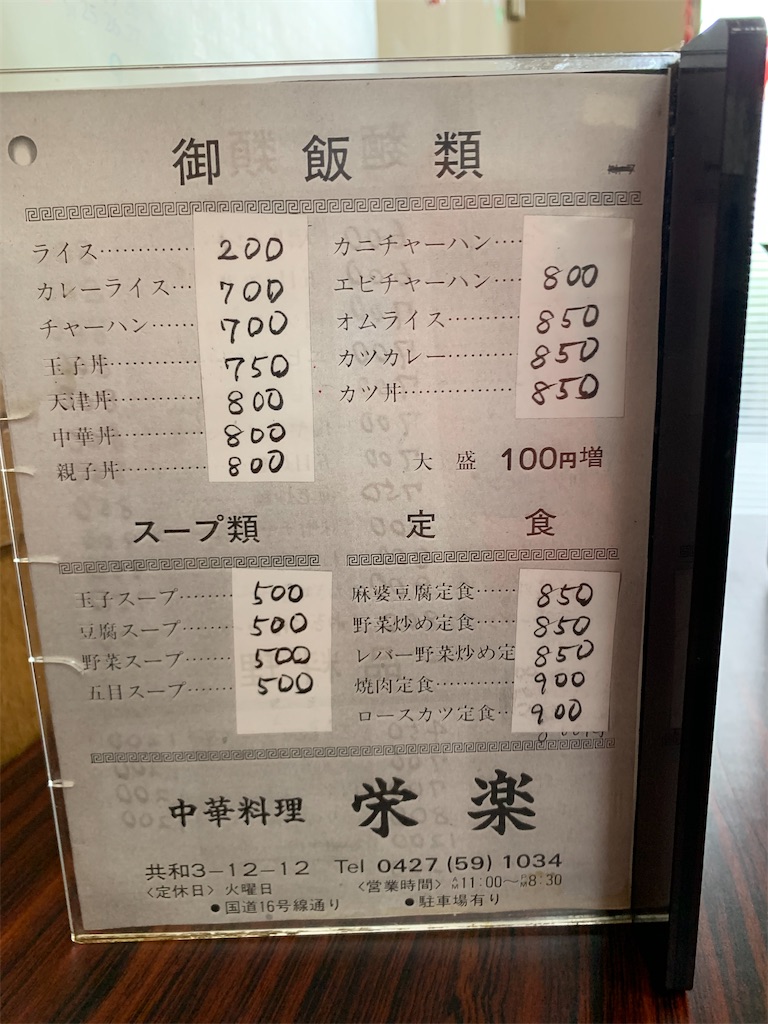 御飯類
ライス 200
カレーライス 700
チャーハン 700
玉子丼 750
天津丼 800
中華丼 800
親子丼 800
カニチャーハン
エビチャーハン 800
オムライス 850
カツカレー 850
カツ丼 850
大盛 100円増
スープ類
玉子スープ 500
豆腐スープ 500
野菜スープ 500
五目スープ 500
定食
麻婆豆腐定食 850
野菜炒め定食 850
レバー野菜炒め定 850
焼肉定食 900
ロースカツ定食 900
中華料理 栄楽
共和3-12-12 Tel 0427(59)1034
〈定休日〉火曜日 〈営業時間〉AM11:00〜PM8:30
●国道16号線通り ●駐車場有り